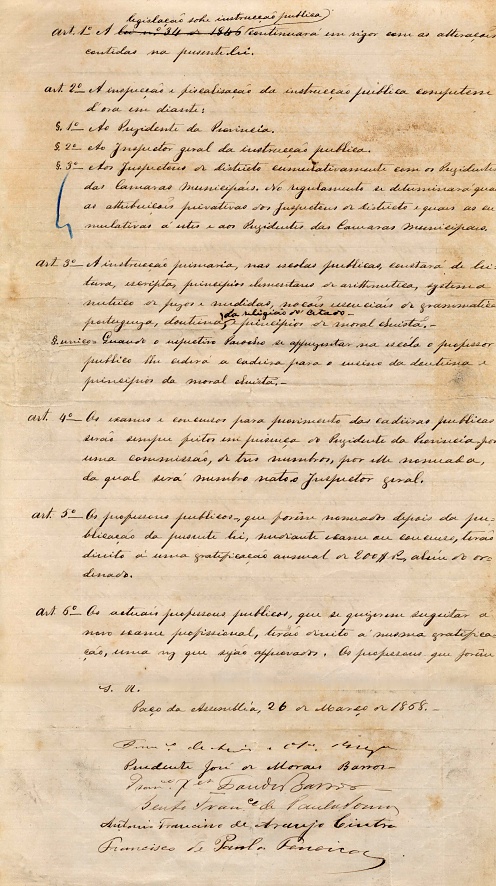 legislação sobre instrucção publica
Art. 1º A lei nº 34 de 1846 continuará em vigor com as alterações
contidas na presente lei.
Art. 2º A inspecção e fiscalisação da instrucção publica competem
d'ora em diante:
§. 1º Ao Prezidente da Provincia.
§. 2º Ao Inspector geral da instrucção publica.
§. 3º Aos Inspectores de districto cumulativamente com os Prezidentes
das Camaras Municipaes. No regulamento se determinará quaes
as attribuições privativas dos Inspectores de districto e quaes as cu
mulativas á estes e aos Prezidentes das Camaras Municipaes.
Art. 3º A instrucção primaria, nas escolas publicas, constará de lei
tura, escripta, principios elementares de arithmetica, systema
metrico de pezos e medidas, noções essenciaes de grammatica
da religião do Estado
portugueza, doutrina e principios de moral christã.
§. unico Quando o respectivo Parocho se appresentar na escola o professor
publico lhe cederá a cadeira para o ensino da doutrina e
principios da moral christã.
Art. 4º Os exames e concursos para provimento das cadeiras publicas
serão sempre feitos em presença do Prezidente da Provincia por
uma commissão, de tres membros, por elle nomeada,
da qual será membro nato o Inspector geral.
Art. 5º Os professores publicos, que forem nomeados depois da pu-
blicação da presente lei, mediante exame ou concurso, terão
direito á uma gratificação annual de 200$ rs, alem do or-
denado.
Art 6º Os actuais professores publicos, que se quizerem sugeitar a
novo exame profissional, terão direito á mesma gratifica-
ção, uma vez que sejão approvados. Os professores que forem
S. R.
Paço da Assemblia, 26 de Março de 1868.
Prudente José de Moraes Barros
Bento Franco de Paula Souza
Antonio Francisco de Araujo Cintra
Francisco de Paula Ferreira